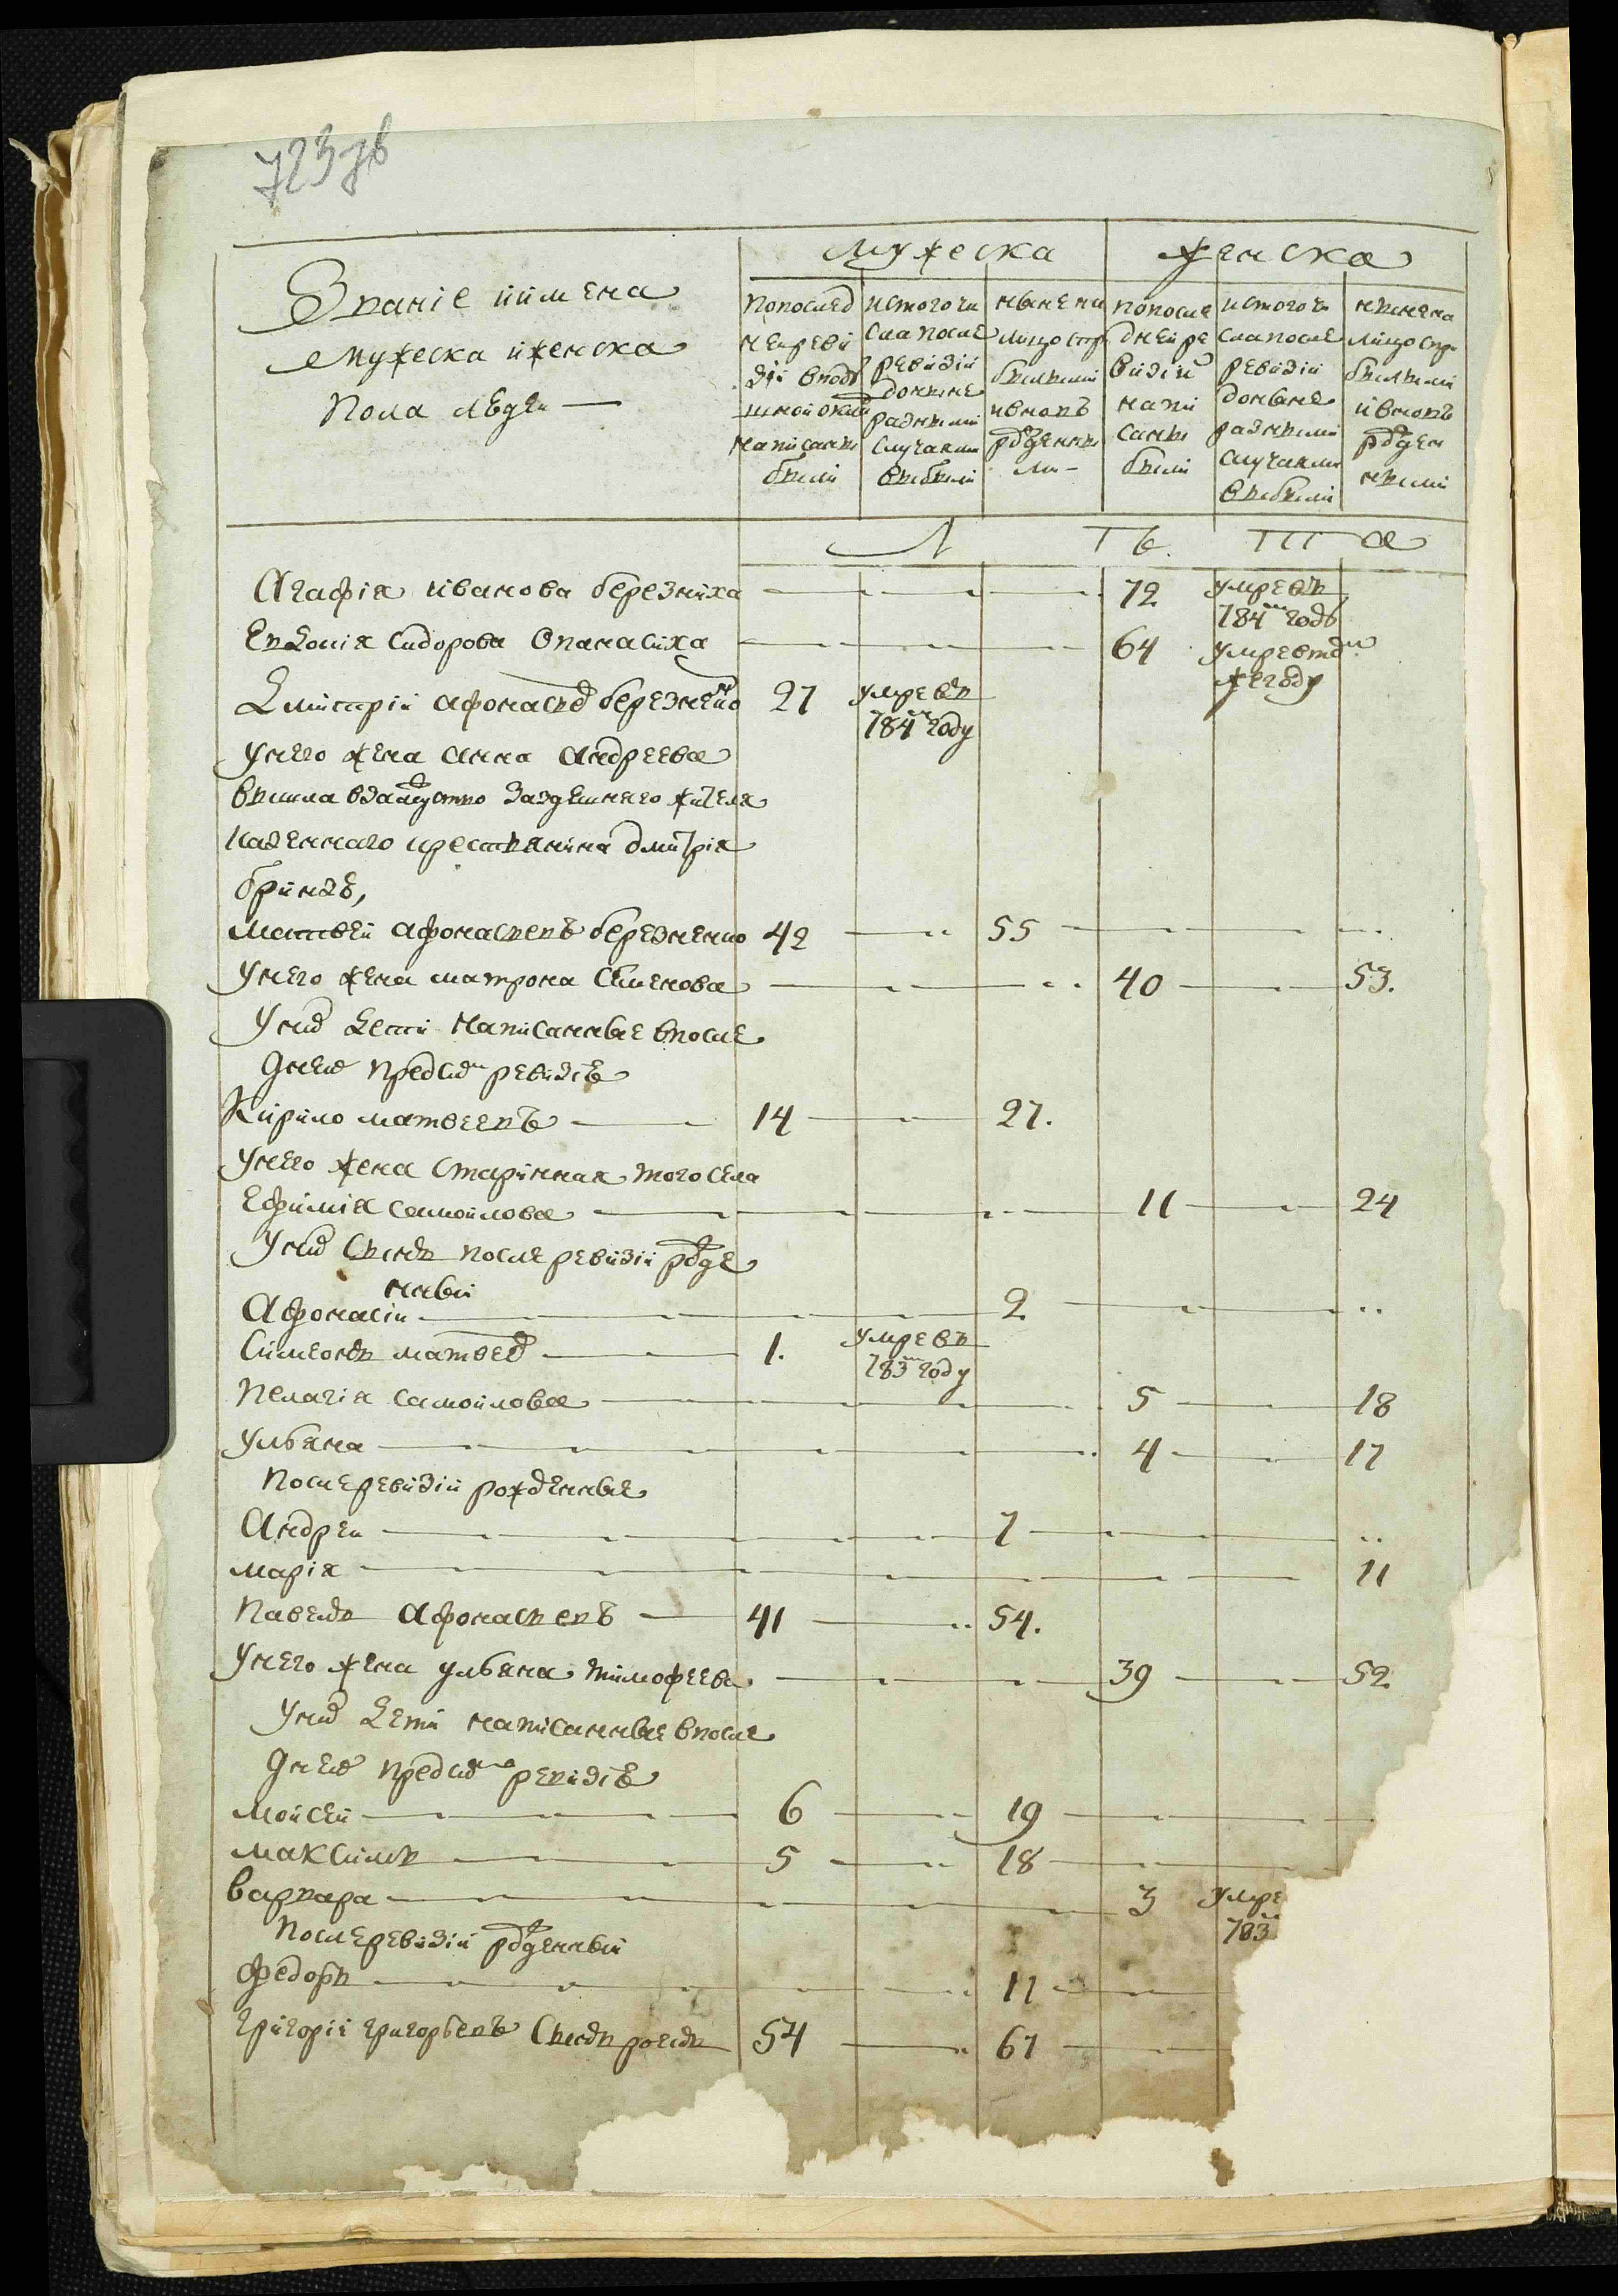 723 зв
Званіе иимена
мужеска иженска
пола людеи —
мужеска
женска
попослед
неиреви
зіи вподу
шной окла
написаны
были
истогочи
сла после
ревизіи
доныне
разными
случаями
выбыли
ныне на
лицо стр
былыми
ивновъ
рожденны
ми -
попосле
днеи ре
визіи
напи
саны
были
истогочи
сла после
ревизіи
доныне
разными
случаями
выбыли
ныне на
лицо спри
былыми
ивновъ
рожден
ными
Л Ѣ Т А
Агафія иванова березниха 72 умре въ
784м году
Евдокія Сидорова Опанасиха 64 умре втом
же году
Дмитрій афонасьев березненко 27 умре въ
784м году
унего жена анна андреева
вышла взамужство заздешнего жителя
казеннаго крестьянина дмитрія
матвеи афонасьевъ березненко 42 55
унего жена матрона Семенова 40 53.
Уних дети написанные впосле
днеи пред сим ревизіи
Кирило матвеевъ 14 27.
унего жена старинная того села
Ефимія самойлова 11 24
Уних сынъ после ревизіи рожде
нный
Афонасіи 2 ..
Симеонъ матвеев 1. умре въ
783м году
Пелагія самойлова 5 18
ульяна 4 17
После ревизіи рожденные
Андреи 7 ..
марія 11
Павелъ Афонасьевъ 41 54.
унего жена ульяна тимофеева 39 52
Уних дети написанные впосле
днеи пред сим ревизіи
мойсеи 6 19
максимъ 5 18
варвара 3 умре
783м
После ревизіи рожденныи
федоръ 11
григоріи григорьевъ сынъ 54 67